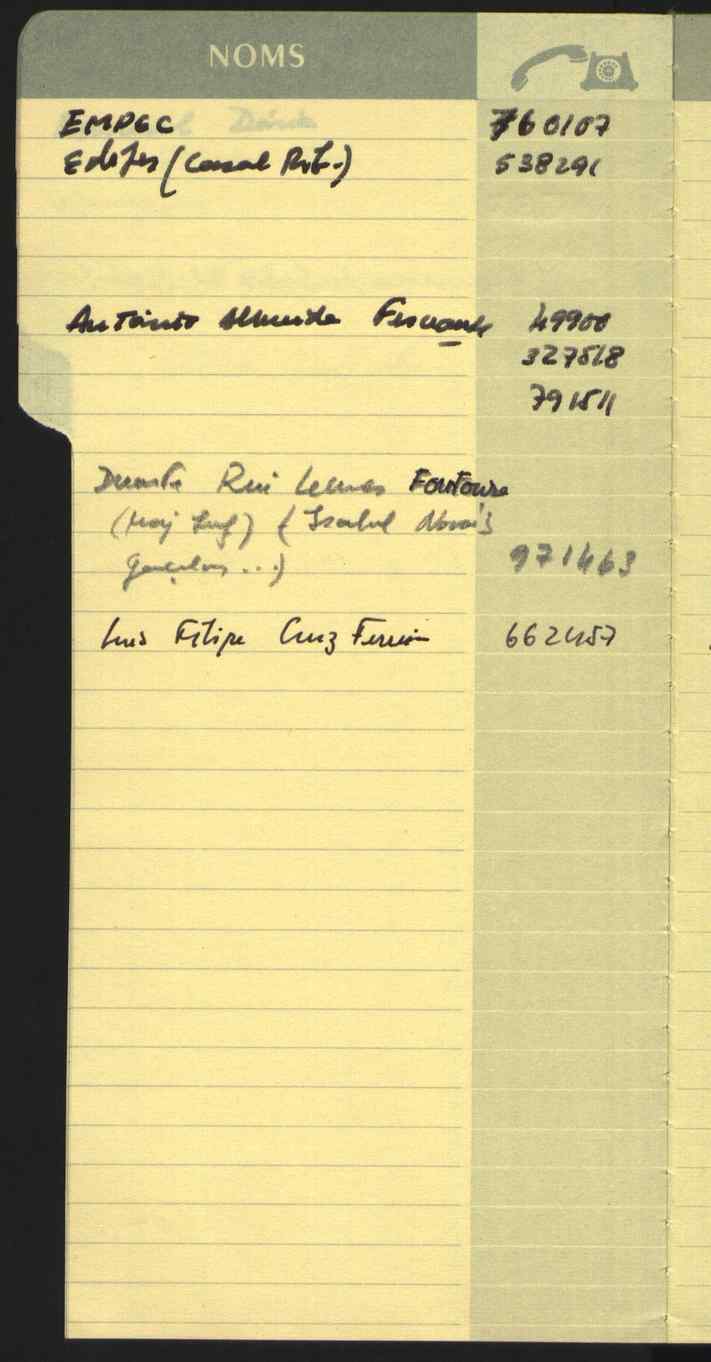 NOMS
EMPGC 760107
(Casal Rib.) 538291
António Almeida 49900
327518
791511
Duarte Rui Lemos Fontoura
(Maj Eng) (Isabel Novais
Gonçalves...) 971463
Luis Filipe Cruz Ferreira 662457